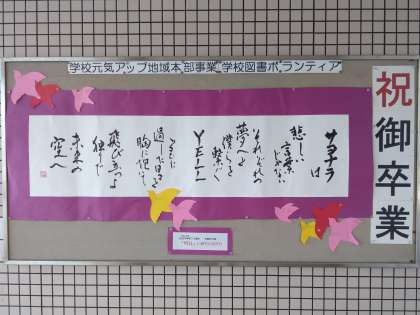 学校元気アップ地域本部事業 学校図書ボランティア
祝
御卒業
サヨナラは
悲しい
言葉じゃない
それぞれの
夢へと
僕らを
繋ぐ
YELL
ともに
過ごした日々を
胸に抱いて
飛び立つよ
独りで
未来の
空へ